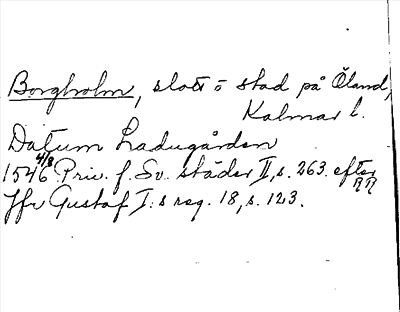 Borgholm, slott o stad på Öland,
Kalmar l.
Datum Ladugården
1546 4/8 Priv. f. Sv. städer II, s. 263. efter RR
Jfr Gustaf I:s reg. 18, s. 123.